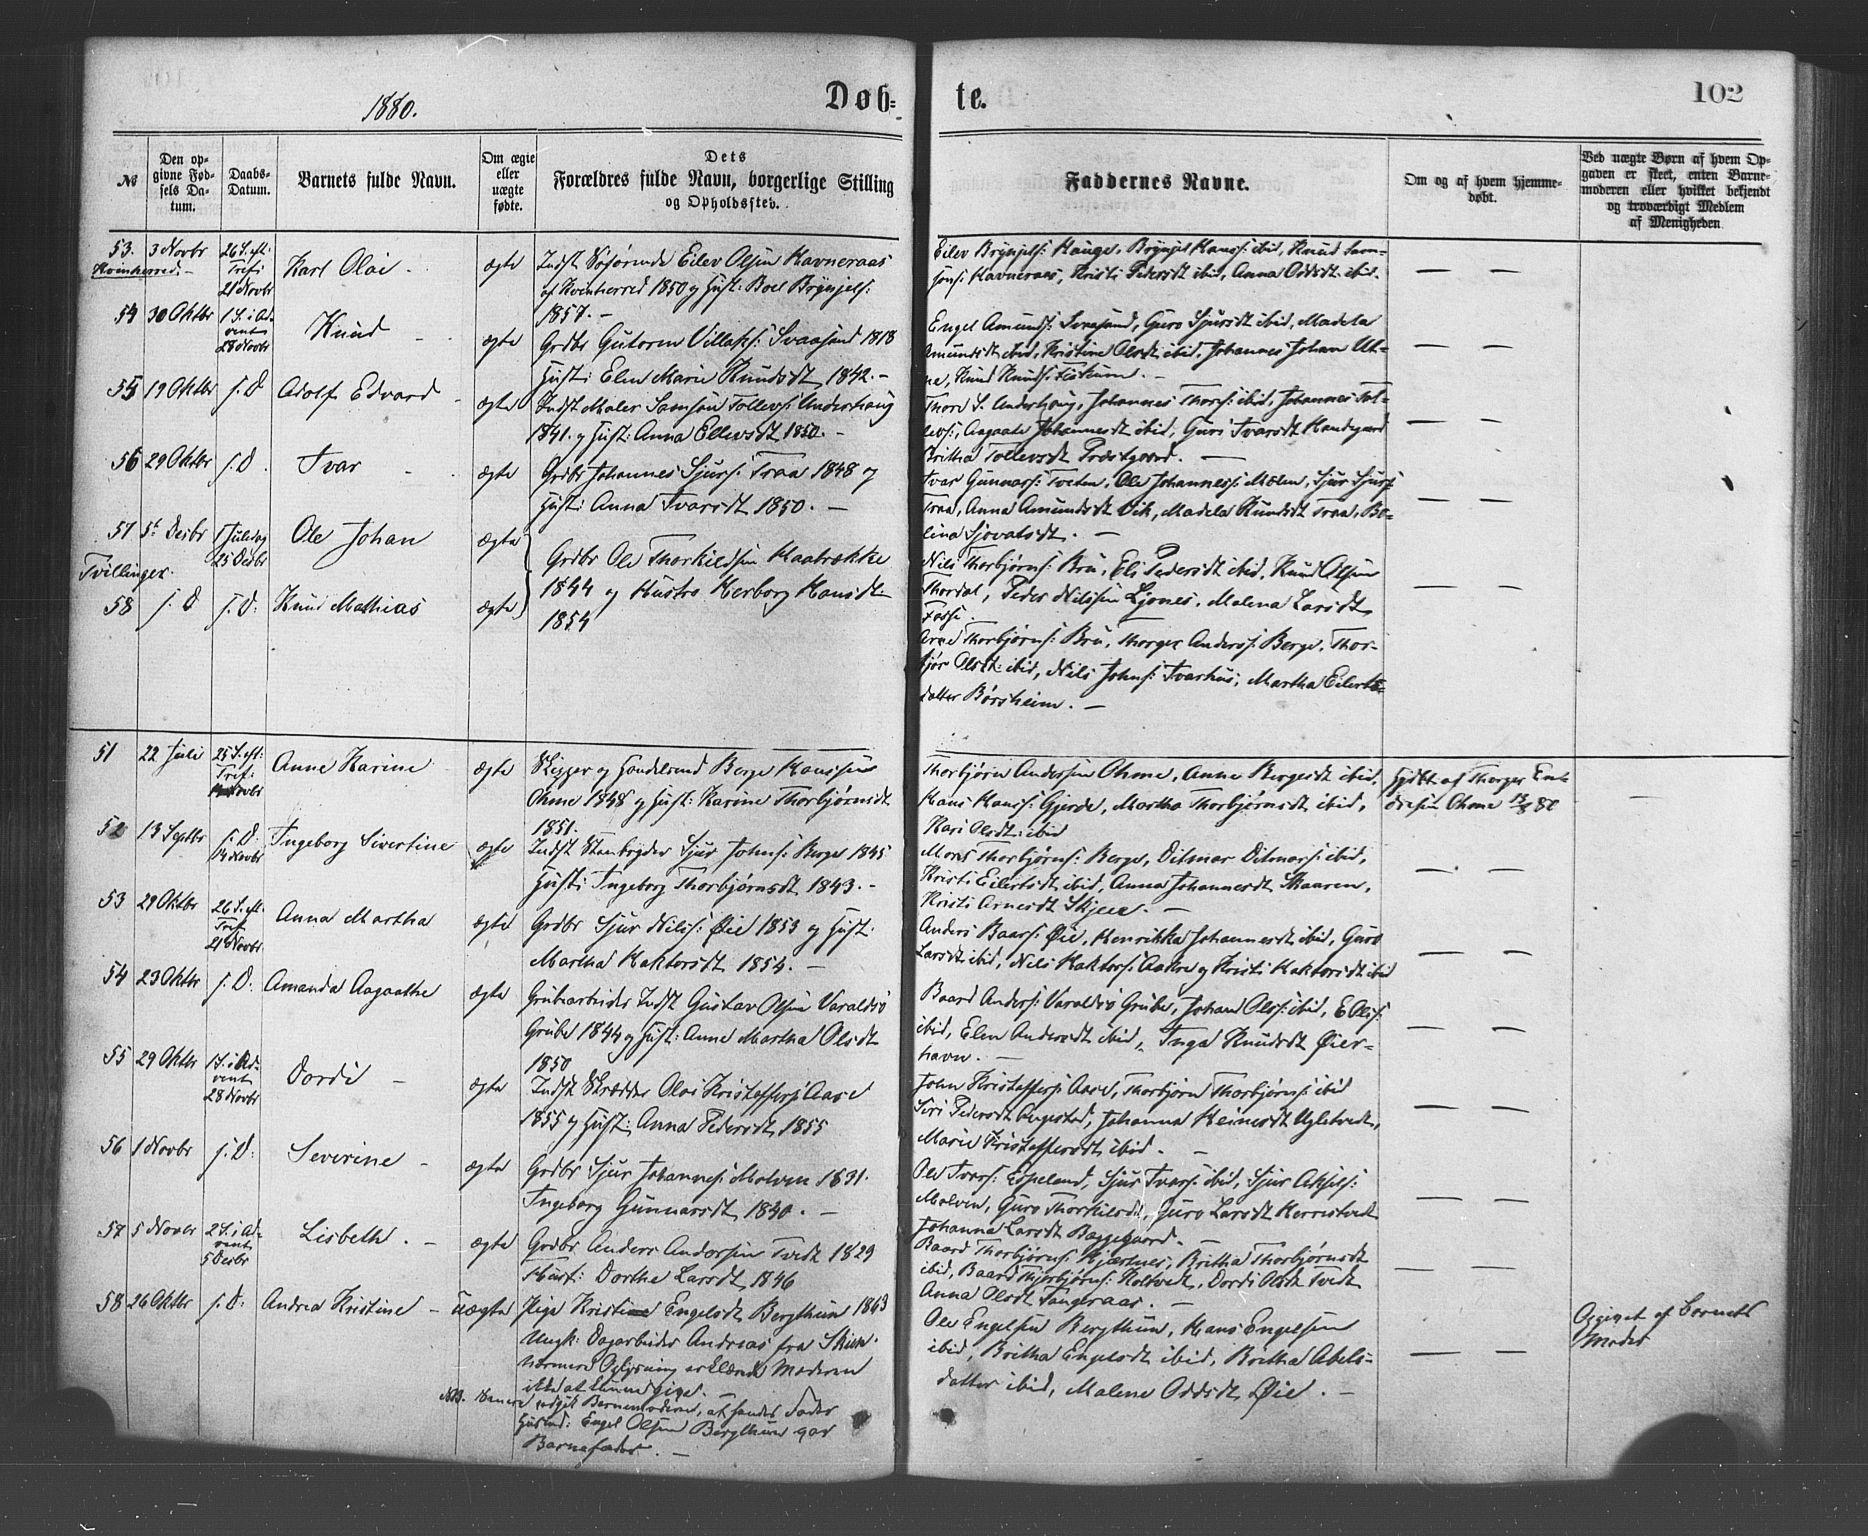 1880.
Døb-
te.
102
№
Den op-
givne Fød-
sels Da-
tum.
Daabs-
Datum.
Barnets fulde Navn.
Om ægte
eller
uægte
fødte.
Dets
Forældres fulde Navn, borgerlige Stilling
og Opholdssted.
Faddernes Navne.
Om og af hvem hjemme-
døbt.
Ved uægte Børn af hvem Op-
gaven er skeet, enten Barne-
moderen eller hvilket bekjendt
og troværdigt Medlem
af Menigheden
53. 3 Novbr 26 S. eft:
Kvinherred Tref:
21 Novbr
Karl Olai - ægte
Indst Søfarende Eilev Olsen Havneraas
af Kvinherred 1850 og Hust: Boel Brynjels:
1857. -
Eilev Brynjels: Hauge, Brynjel Hans: ibid, Knud Sam-
sons: Havneraas, Kristi Pedersdt ibid, Anna Oddsdt ibid.
— —
54 30 Oktbr 1 S. i Ad-
vent
28 Novbr
Knud - - ægte
Grdbr Gutorm Villaks: Svaasand 1818
Hust: Elen Marie Knudsdt 1842. -
Engel Amunds: Svasand, Guro Sjursdt ibid, Madela
Amundsdt ibid, Kristine Olsdt ibid, Johannes Johan Ut-
ne, Knud Knuds: Fiskum. -
— —
55 19 Oktbr s. D Adolf Edvard - ægte
Indst Maler Samson Tollevs: Anderhaug
1841. og Hust: Anna Ellevsdt 1850. -
Thore S. Anderhaug, Johannes Thors: ibid, Johannes Tol-
levs:, Aagaate Johannesdt ibid, Guri Ivarsdt
Britha Tollevsdt Præstgaard. -
— —
56 29 Oktbr s. D. Ivar - ægte
Grdbr Johannes Sjurs: Traa 1848 og
Hust: Anna Ivarsdt 1850. -
Ivar Gunnars: Tveten, Ole Johanness: Mælen, Sjur Sjurs:
Traa, Anna Amundsdt Vik, Madela Knudsdt Traa, Bo-
lina Sjovatsdt. -
— —
57 5t Desbr 1 Juledag
25 Desbr
Ole Johan ægte
Tvillinger.
Grdbr Ole Thorkildsen Kaatrække
1844 og Hustro Herborg Hansdt
1854
Nils Thorbjørns: Bru, Eli Pedersdt ibid, Knud Olsen
Thordal, Peder Nilssen Ljones, Malena Larsdt
Fosse.
— —
58 s. D s. D: Knud Mathias ægte
Arne Thorbjørns: Bru, Thorger Anders: Berge, Thor-
bjør Olsdt: ibid, Nils Johns: Ivarhus, Martha Eilerts-
datter Børsheim. -
51 22 Juli 25 S. eft:
Tref:
14 Novbr
Anne Karine ægte
Skipper og Handelsmd Berge Hanssen
Ohme 1848 og Hust: Karine Thorbjørnsdt
1851.
Thorbjørn Andersen Ohme, Anne Bergesdt ibid,
Hans Hans: Gjerde, Martha Thorbjørnsdt ibid,
Kari Olsdt: ibid
Hjdbt af Thorger En-
dresen Ohme 13/8 80
—
52 13 Septbr s. D:
14 Novbr
Ingeborg Sivertine ægte
Indst Stenbryder Sjur Johns: Berge 1845
Hust: Ingeborg Thorbjørnsdt 1843. -
Mons Thorbjørns: Berge, Ditmar Ditmars: ibid,
Kristi Eilertsdt ibid, Anna Johannesdt Skaaren,
Kristi Arnesdt Skjeie. -
— —
53 29 Oktbr 26 S. eft.
Tref
21 Novbr.
Anna Martha ægte
Grdbr Sjur Nilss: Øie 1853 og Hust:
Martha Haktorsdt 1854. -
Anders Baars: Øie, Henrikka Johannesdt ibid, Guro
Larsdt ibid, Nils Haktors: Aakre og Kristi Haktorsdt ibid
— —
54 23 Oktbr s: D: Amanda Aagaathe ægte
Grubearbeider Indst Gustav Olsen Varaldsø
Grube 1844 og Hust: Anne Martha Olsdt
1850
Baard Anders: Varaldsø Grube, Johan Ols: ibid, E Olss:
ibid, Elen Andersdt ibid, Inga Knudsdt Øier-
havn. -
— —
55 29 Oktbr 1 S. i Ad-
vent
28 Novbr
Dordi - ægte
Indst Skrædder Olai Kristoffers: Aase
1855 og Hust: Anna Pedersdt 1855
John Kristoffers: Aase, Thorbjørn Thorbjørns: ibid
Siri Pedersdt Augestad, Johanna Heinesdt Ugletvedt,
Marie Kristoffersdt ibid. -
— —
56 1 Novbr s. D: Severine - ægte
Grdbr Sjur Johannes: Molven 1831.
Ingeborg Gunnarsdt 1840. -
Ole Ivars: Espeland, Sjur Ivars: ibid, Sjur Aksels:
Molven, Guro Thorkilsdt, Guro Larsdt Herrestvedt
Johanna Larsdt Baggegaard. -
— —
57 5 Novbr 2 S. i Ad-
vent
5 Desbr
Lisbeth. - ægte
Grdbr Anders Andersen Tvedt 1829
Hust: Dorthe Larsdt 1846
Baard Thorbjørns: Hjærtnes, Britha Thorbjørnsdt
ibid, Baard Thorbjørns: Holtvedt, Dordi Olsdt Tvedt
Anna Olsdt Tangeraas. -
— —
58 26 Oktbr s. D: Andrea Kristine - uægte
Pige Kristine Engelsdt Bergthun 1863
Ungk: Dagarbeider Andreas fra Skien.
Nærmere Oplysning erklærede Moderen
ikke at kunne give. -
NB. Senere opgik Barnemoderen, at hendes Fader
Gustad: Engel Olsen Bergthun var
Barnefader. -
Ole Engelsen Bergthun, Hans Engelsen
ibid, Britha Engelsdt ibid, Britha Abels-
datter ibid, Malene Oddsdt Øie. -
— —
Opgivet af Barnets
Moder